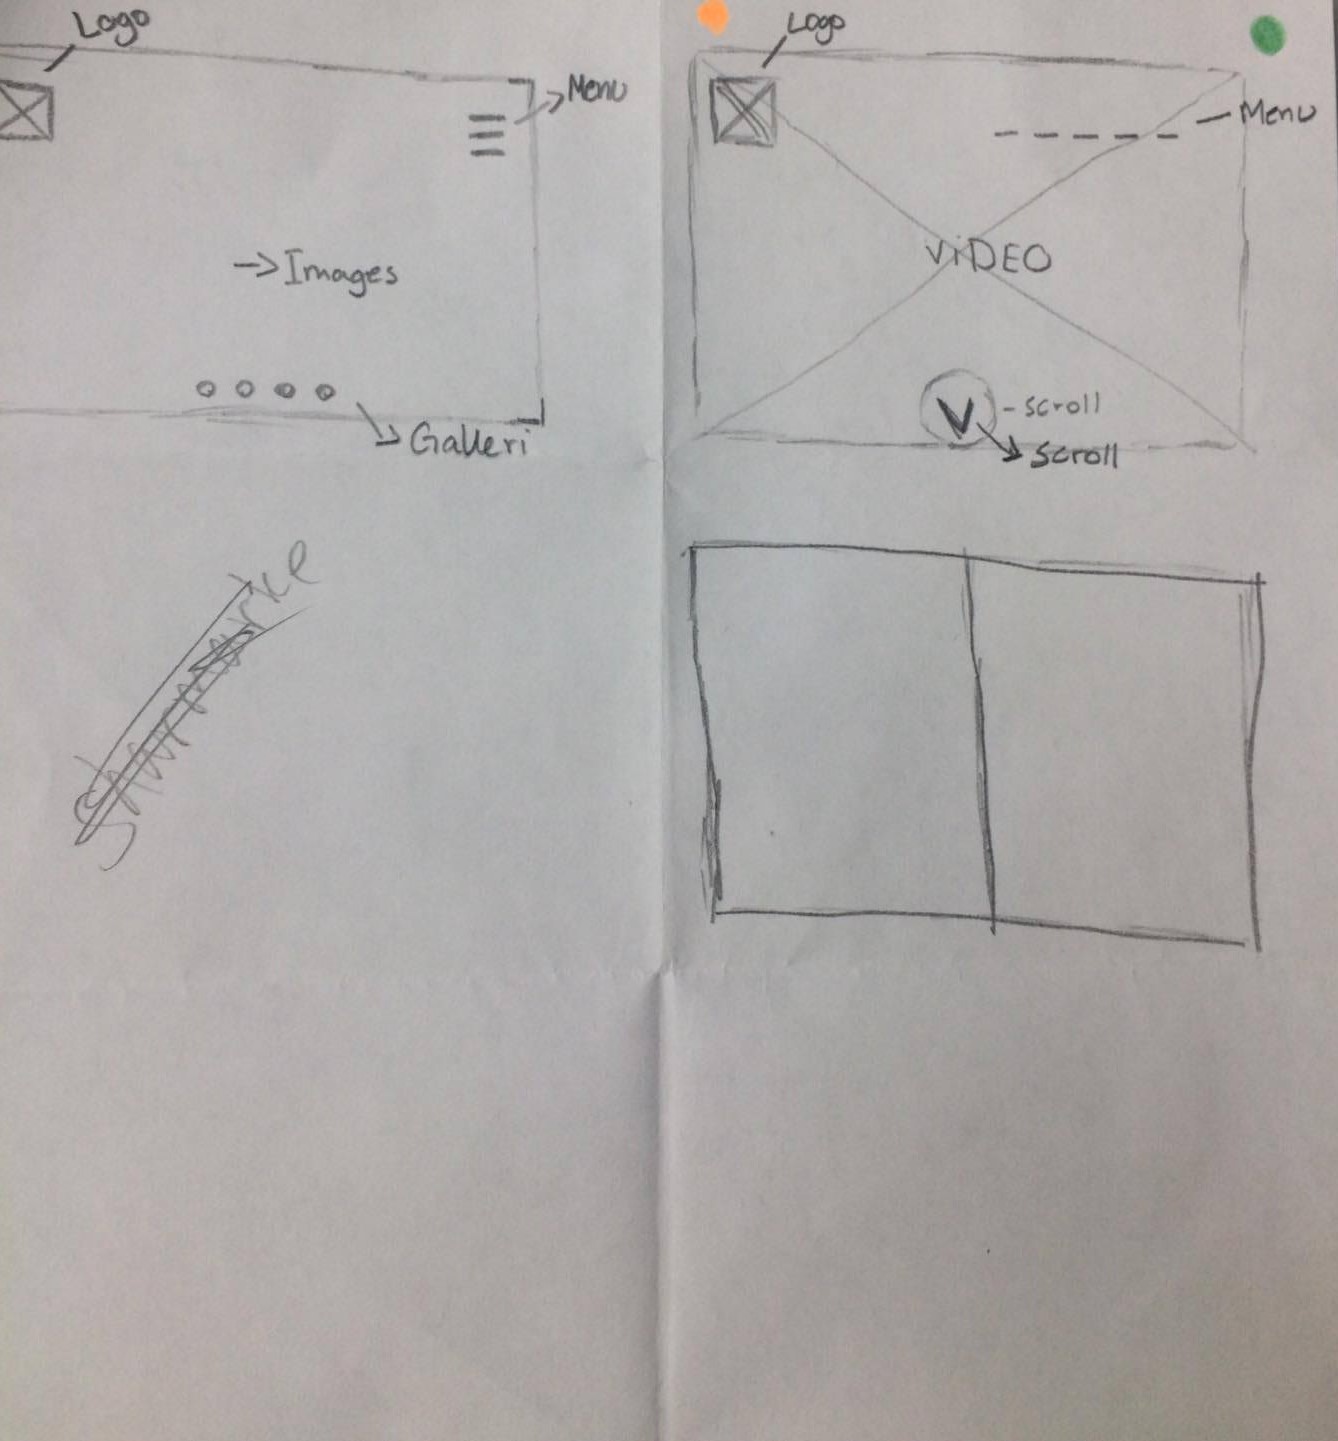 Logo
Menu
→Images
Galleri
Logo
Menu
ViDEO
- scroll
scroll